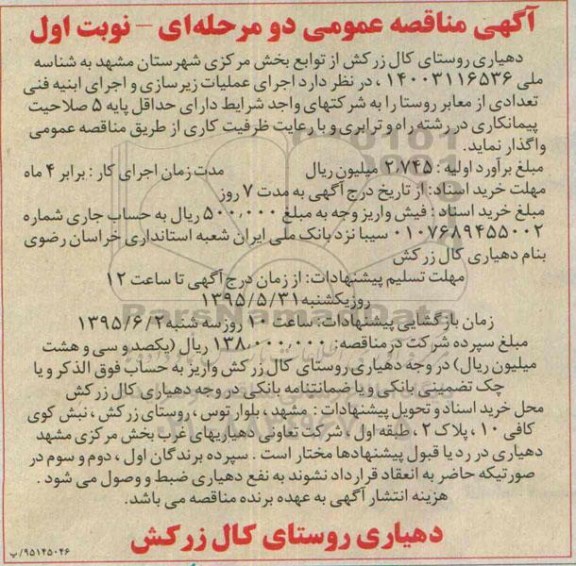 آگهی مناقصه عمومی دو مرحله‌ای - نوبت اول
دهیاری روستای کال زرکش از توابع بخش مرکزی شهرستان مشهد به شناسه
ملی ۱۴۰۰۳۱۱۶۵۳۶ ، در نظر دارد اجرای عملیات زیرسازی و اجرای ابنیه فنی
تعدادی از معابر روستا را به شرکتهای واجد شرایط دارای حداقل پایه ۵ صلاحیت
پیمانکاری در رشته راه و ترابری و با رعایت ظرفیت کاری از طریق مناقصه عمومی
واگذار نماید.
مبلغ برآورد اولیه : ۲،۷۴۵ میلیون ریال مدت زمان اجرای کار : برابر ۴ ماه
مهلت خرید اسناد: از تاریخ درج آگهی به مدت ۷ روز
مبلغ خرید اسناد : فیش واریز وجه به مبلغ ۵۰۰،۰۰۰ ریال به حساب جاری شماره
۰۱۰۷۶۸۹۴۵۵۰۰۲ سیبا نزد بانک ملی ایران شعبه استانداری خراسان رضوی
بنام دهیاری کال زرکش
مهلت تسلیم پیشنهادات: از زمان درج آگهی تا ساعت ۱۲
روز یکشنبه ۱۳۹۵/۵/۳۱
زمان بازگشایی پیشنهادات: ساعت ۱۰ روز سه شنبه ۱۳۹۵/۶/۲
مبلغ سپرده شرکت در مناقصه: ۱۳۸،۰۰۰،۰۰۰ ریال (یکصد و سی و هشت
میلیون ریال) در وجه دهیاری روستای کال زرکش واریز به حساب فوق الذکر و یا
چک تضمینی بانکی و یا ضمانتنامه بانکی در وجه دهیاری کال زرکش
محل خرید اسناد و تحویل پیشنهادات : مشهد ، بلوار توس ، روستای زرکش ، نبش کوی
کافی ۱۰ ، پلاک ۲ ، طبقه اول ، شرکت تعاونی دهیاریهای غرب بخش مرکزی مشهد
دهیاری در رد یا قبول پیشنهادها مختار است . سپرده برندگان اول ، دوم و سوم در
صورتیکه حاضر به انعقاد قرارداد نشوند به نفع دهیاری ضبط و وصول می شود .
هزینه انتشار آگهی به عهده برنده مناقصه می باشد.
دهیاری روستای کال زرکش
۹۵۱۴۵۰۴۶/پ
ParsNamadData